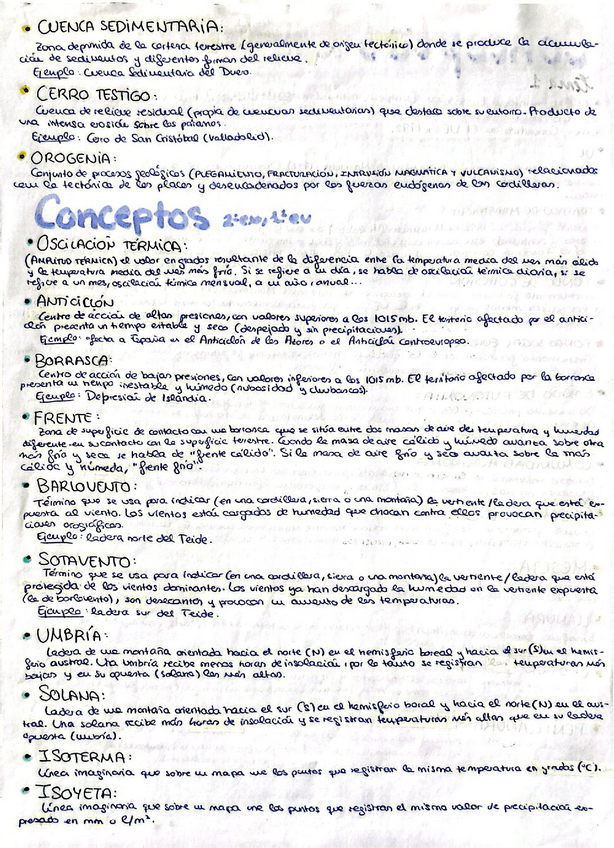 • CUENCA SEDIMENTARIA:
Zona deprimida de la corteza terrestre (generalmente de origen tectónico) donde se produce la acumula-
ción de sedimentos y diferentes formas del relieve.
Ejemplo: Cuenca Sedimentaria del Duero.
• CERRO TESTIGO:
Cuenca de relieve residual (propia de cuencas sedimentarias) que destaca sobre su entorno. Producto de
una intensa erosión sobre los páramos.
Ejemplo: Cerro de San Cristóbal (Valladolid).
• OROGENIA:
Conjunto de procesos geológicos (PLEGAMIENTO, FRACTURACIÓN, INTRUSIÓN MAGMÁTICA Y VULCANISMO) relacionados
con la tectónica de las placas y desencadenados por las fuerzas endógenas de las cordilleras.
Conceptos 2ºexa, 1ªev
• OSCILACIÓN TÉRMICA:
(AMPLITUD TÉRMICA) el valor en grados resultante de la diferencia entre la temperatura media del mes más cálido
y la temperatura media del mes más frío. Si se refiere a un día, se habla de oscilación térmica diaria, si se
refiere a un mes, oscilación térmica mensual, a un año, anual...
• ANTICICLÓN
Centro de acción de altas presiones, con valores superiores a los 1015 mb. El territorio afectado por el antici-
clón presenta un tiempo estable y seco (despejado y sin precipitaciones).
Ejemplo: afecta a España es el Anticiclón de las Azores o el Anticiclón centroeuropeo.
• BORRASCA:
Centro de acción de bajas presiones, con valores inferiores a los 1015 mb. El territorio afectado por la borrasca
presenta un tiempo inestable y húmedo (nubosidad y chubascos).
Ejemplo: Depresión de Islandia.
• FRENTE:
Zona de superficie de contacto con una borrasca que se sitúa entre dos masas de aire de temperatura y humedad
diferente en su contacto con la superficie terrestre. Cuando la masa de aire cálido y húmedo avanza sobre otra
más frío y seca se habla de "frente cálido". Si la masa de aire frío y seco avanza sobre la más
cálido y húmeda, "frente frío".
• BARLOVENTO:
Término que se usa para indicar (en una cordillera, sierra o una montaña) la vertiente/ladera que está ex-
puesta al viento. Los vientos están cargados de humedad que chocan contra ellos provocan precipita-
ciones orográficas.
Ejemplo: ladera norte del Teide.
• SOTAVENTO:
Término que se usa para indicar (en una cordillera, sierra o una montaña) la vertiente/ladera que está
protegida de los vientos dominantes. Los vientos ya han descargado la humedad en la vertiente expuesta
(la de barlovento), son desecantes y provocan un aumento de las temperaturas.
Ejemplo: ladera sur del Teide.
• UMBRÍA:
Ladera de una montaña orientada hacia el norte (N) en el hemisferio boreal y hacia el sur (S) en el hemis-
ferio austral. Una umbría recibe menos horas de insolación, por lo tanto se registran temperaturas más
bajas y en su opuesta (solana) las más altas.
• SOLANA:
Ladera de una montaña orientada hacia el sur (S) en el hemisferio boreal y hacia el norte (N) en el aus-
tral. Una solana recibe más horas de insolación y se registran temperaturas más altas que en su ladera
opuesta (umbría).
• ISOTERMA:
Línea imaginaria que sobre un mapa une los puntos que registran la misma temperatura en grados (ºC).
• ISOYETA:
Línea imaginaria que sobre un mapa une los puntos que registran el mismo valor de precipitación ex-
presado en mm o l/m².